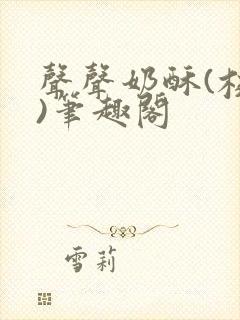 聲聲奶酥(
)筆趣閣
雪莉